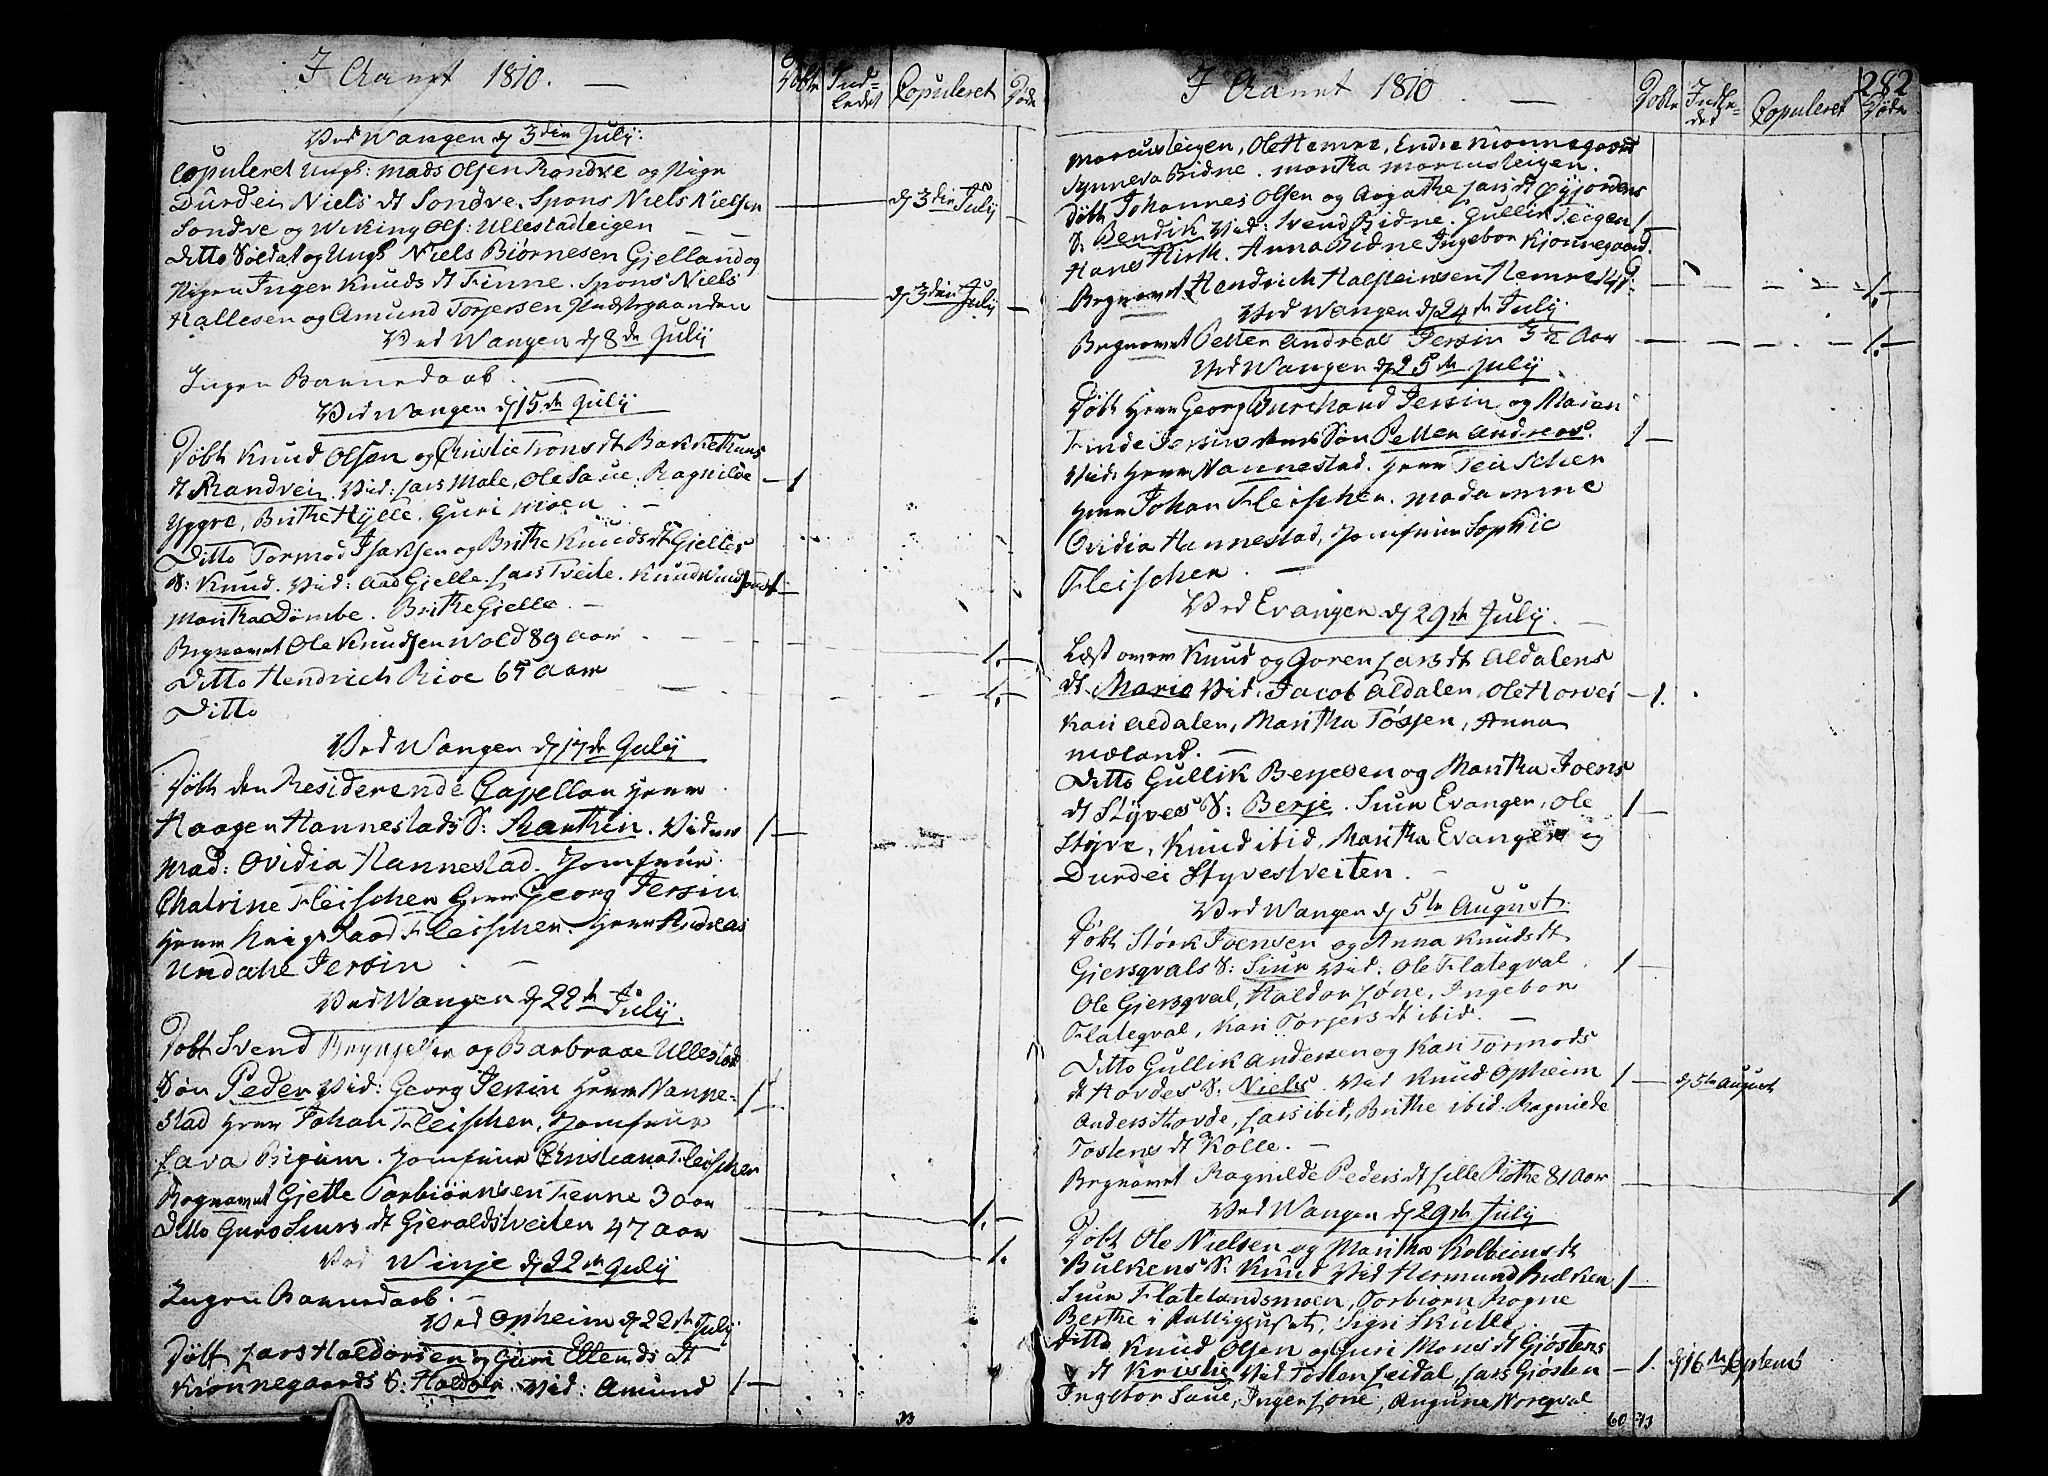 I Aaret 1810.
Døbte
Ind-
ledet
Copuleret
Døde
Ved Wangen d 3die July:
Copuleret Ungk: Mads Olsen Rondve og Pige
Durdei Niels dt Sondve. Spons Niels Nielsen
d 3die July
Sondve og Wiking Ols: Ullestadteigen
Ditto Soldat og Ungk Niels Biørnesen Gjelland og
Pigen Inger Knuds dt Finne. Spons Niels
d 3die July
Hallesen og Amund Torjersen
Ved Wangen d 8de July
Ingen Barnedaab.
Ved Wangen d 15de July
Døbt Knud Olsen og Christie Trons dt Bakkethuns
dt Randvei. Vid: Lars Male, Ole Saue. Ragnilde 1
Yggre, Brithe Hylle. Guri Moen
Ditto Tormod Isaksen og Brithe Knuds dt Gjelles
S: Knud. Vid: Aad Gjelle. Lars Tveite. Knud 1
Maritha Dømbe. Brithe Gjelle.
Begravet Ole Knudsen Wold 89 aar 1.
Ditto Hendrich Rioe 65 aar 1.
Ditto
Ved Wangen d 17de July
Døbt den Residerende Capellan Herr
Haagen Hannestads S: Rankin. Vidner 1
Mad: Ovidia Hannestad. Jomfrue
Chatrine Fleischer Herr Georg Jersin
Herr Krigsraad Fleischer. Herr Andreas
Undahl Jersin.
Ved Wangen d 22de July.
Døbt Svend Brynjelsen og Barbraae Ullestad
Søn Peder Vid: Georg Jersin Herr Nanne- 1
stad Herr Johan Fleischer, Jomfrue
Lava Bigum. Jomfrue Christiana Fleischer
Begravet Gjetle Torbiørnsen Tenne 3 aar 1.
Ditto Guro Siurs dt Gjeraldstveiten 47 aar 1.
Ved Winje d 22de July
Ingen Barnedaab.
Ved Opheim d 22de July
Døbt Lars Haldorsen og Guri Ellends dt
Kiønnegaards S: Haldor. Vid: Amund 1
33
282
I Aaret 1810.
Døbte
Indle-
det
Copuleret
Døde
Marcusteigen, Ole Hemre, Endre Kiønnegaard
Synneva Bidne. Maritha Marcusteigen.
Døbt Johannes Olsen og Aagathe Lars dt Øyjordens
S: Bendik Vid: Svend Bidne. Gullik Teigen 1
Hans Hirth. Anna Bidne Ingebor Kjønnegaard.
Begravet Hendrich Halsteinsen Hemre 1.
Ved Wangen d 24de July
Begravet Petter Andreas Jersin 3½ Aar 1.
Ved Wangen d 25de July.
Døbt Herr Georg Burchard Jersin og Maren
Finde Jersins Søn Petter Andreas. 1
Vid: Herr Nannestad. Herr Fleischer
Herr Johan Fleischer. Madamme
Ovidia Hannestad, Jomfrue Sophie
Fleischer.
Ved Evanger d 29de July.
Læst over Knud og Goren Lars dt Aldalens
dt Maria Vid. Jacob Aldalen, Ole Horvei 1.
Kari Aldalen, Maritha Tøssen, Anna
Mæland.
Ditto Gullik Berjesen og Maritha Joens
dt Styves S: Berje. Siur Evanger, Ole 1
Styve, Knud ibid, Maritha Evanger og
Durdei Styvestveiten.
Ved Wangen d 5te August.
Døbt Størk Joensen og Anna Knuds dt
Gjersqvals S: Siur Vid. Ole Flateqval. 1
Ole Gjersqval, Haldor Løne, Ingebor
Flateqval, Kari Torjers dt ibid.
Ditto Gullik Andersen og Kari Tormods
dt Hovdes S: Niels. Vid Knud Opheim 1 d 5te August
Anders Hovde, Lars ibid, Brithe ibid. Ragnilde
Tostens dt Kolle.
Begravet Ragnilde Peders dt Lille Rothe 81 Aar 1
Ved Wangen d 29de July
Døbt Ole Nielsen og Maritha Kolbeins dt
Bulkens S: Knud Vid Hermund Bulken 1
Siur Flatelandsmoen, Torbiørn Rogne
Berthe i Sigri Skulle.
Ditto Knud Olsen og Guri Mons dt Gjøstens
dt Kristie Vid Tosten Leidal, Lars Gjøsten 1. d 16de Septemb
Ingebor Saue, Inger Løne, Angune Norqval
60 73